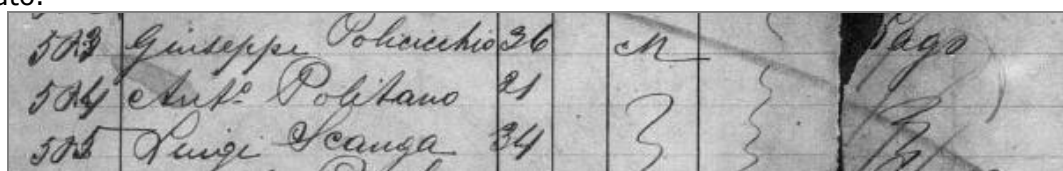 ato.
503 Giuseppe Policicchio 36 M Pago
504 Ant.o Politano 21
505 Luigi Scanga 34